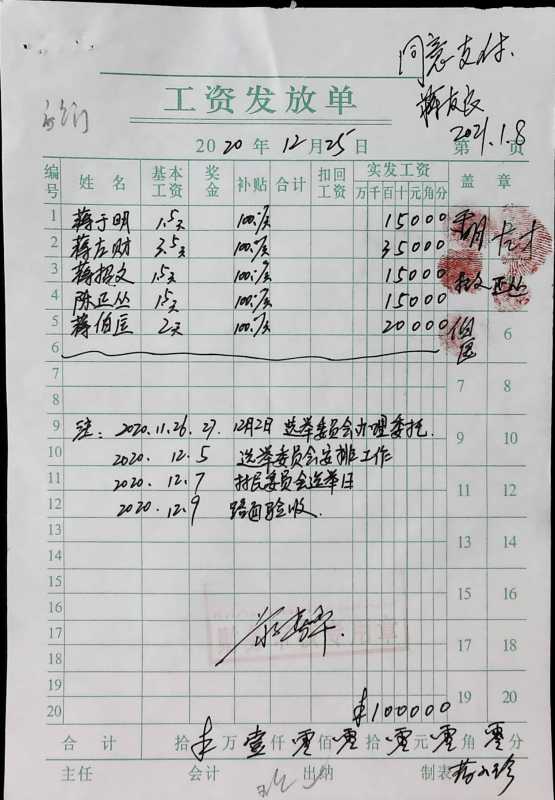 同意支付.
蒋友良
2021.1.8
工资发放单
2020年12月25日 第 页
编号 姓名 基本工资 奖金 补贴 合计 扣回工资 实发工资 盖章
万千百十元角分
1 蒋于明 1.5天 100元/天 15000
2 蒋左财 3.5天 100元/天 35000
3 蒋招文 1.5天 100元/天 15000
4 陈正丛 1.5天 100元/天 15000
5 蒋伯匡 2天 100元/天 20000 伯匡 6
6
7 7 8
8
9 注: 2020.11.26.27. 12月2日 选举委员会办理委托. 9 10
10 2020.12.5 选举委员会安排工作
11 2020.12.7 村民委员会选举日 11 12
12 2020.12.9 路面验收.
13 13 14
14
15 15 16
16
17 17 18
18
19 19 20
20 ¥100000
合计 拾 万壹仟零佰零拾零元零角零分
主任 会计 出纳 制表